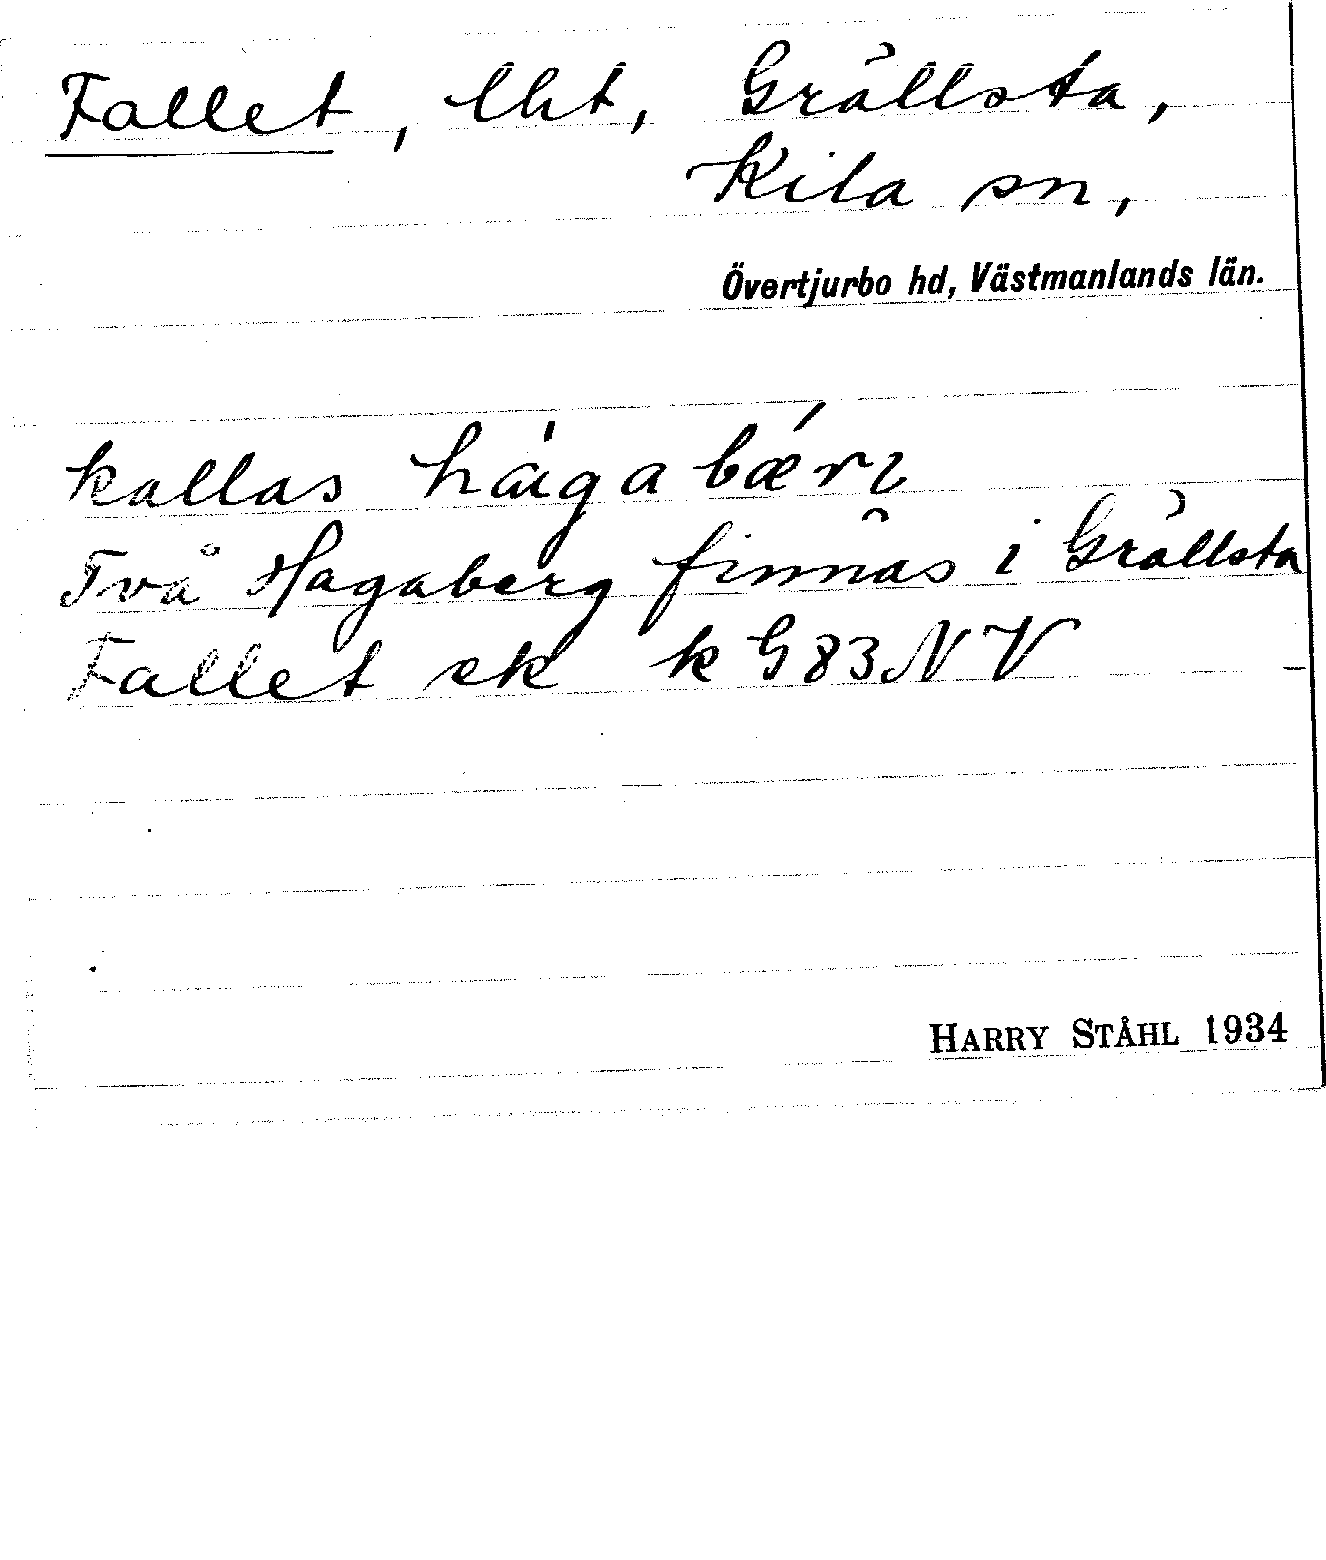 Fallet, lht, Grällsta,
Kila sn,
Övertjurbo hd, Västmanlands län.
kallas hágabǽrɩ
Två Hagaberg finnas i Grällsta
Fallet ek k G 83 NV
HARRY STÅHL 1934